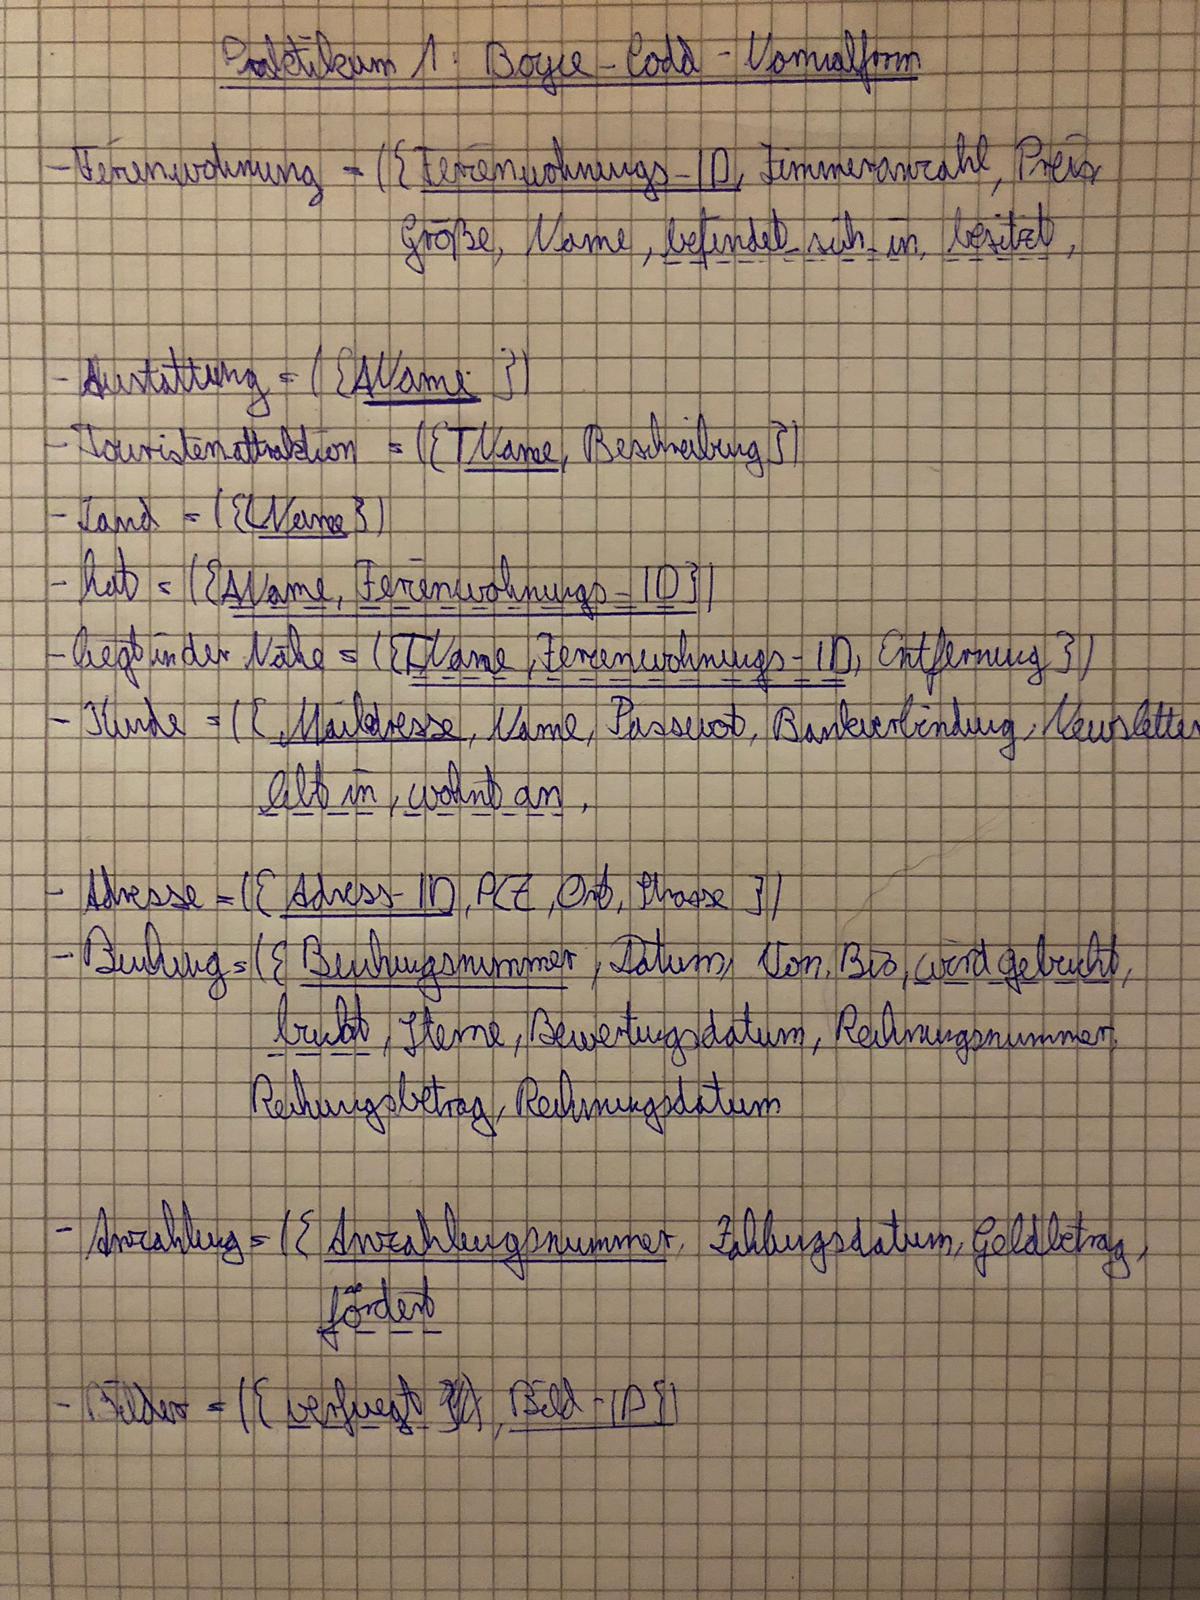 Praktikum 1: Boyce-Codd-Normalform
- Ferienwohnung = ({Ferienwohnungs-ID, Zimmeranzahl, Preis
Größe, Name, befindet sich in, besitzt,
- Austattung = ({AName })
- Touristenattraktion = ({TName, Beschreibung})
- Land = ({LName})
- hat = ({AName, Ferienwohnungs-ID})
- liegt in der Nähe = ({TName, Ferienwohnungs-ID, Entfernung})
- Kunde = ({ Mailadresse, Name, Passwort, Bankverbindung, Newsletter
lebt in, wohnt an,
- Adresse = ({ Adress-ID, PLZ, Ort, Strasse })
- Buchung = ({ Buchungsnummer, Datum, Von, Bis, wird gebucht,
bucht, Sterne, Bewertungsdatum, Rechnungsnummer,
Rechungsbetrag, Rechnungsdatum
- Anzahlung = ({ Anzahlungsnummer, Zahlungsdatum, Geldbetrag,
fördert
- Bilder = ({ verfuegt , Bild-ID})